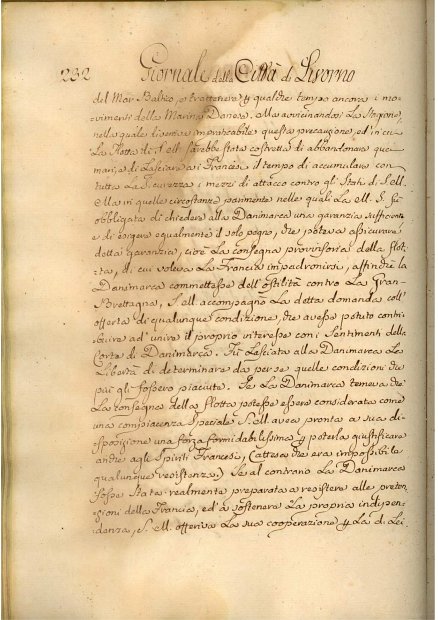 232 Giornale della Città di Livorno
del Mar Baltico, o trattenere p qualche tempo ancora i mo-
vimenti della Marina Danese. Ma avvicinandosi La Stagione,
nella quale diventa impraticabile questa precauzione, ed in cui
La Flotta di S. M. sarebbe stata costretta di abbandonare quei
mari, e di Lasciare ai Francesi il tempo di accumulare con
tutta La Sicurezza i mezzi di attacco contro gli Stati di S. M.
Ma in quelle circostanze parimente nelle quali La M. S. fù
obbligata di chiedere alla Danimarca una garanzia sufficiente
e di esigere egualmente il solo pegno, che poteva assicurare
detta garanzia, cioè La consegna provvisoria della flot-
ta, di cui voleva La Francia impadronirsi, affinchè La
Danimarca commettesse dell'ostilità contro La Gran-
Brettagna, S. M. accompagnò La detta domanda coll'
offerta di qualunque condizione, che avesse potuto contri-
buire ad unire il proprio interesse con i Sentimenti della
Corte di Danimarca. Fù Lasciata alla Danimarca La
Libertà di determinare da per se quelle condizioni che
più gli fossero piaciute. Se La Danimarca temeva che
La consegna della flotta potesse essere considerata come
una compiacenza Speciale S. M. avea pronta a sua di-
sposizione una forza formidabilissima p poterla giustificare
anche agli Spiriti Francesi, (attesa che era impossibile
qualunque resistenza.) Se al contrario La Danimarca
fosse Stata realmente preparata a resistere alle preten-
sioni della Francia, ed a sostenere La propria indipen-
denza, S. M. offeriva La sua cooperazione p La di Lei